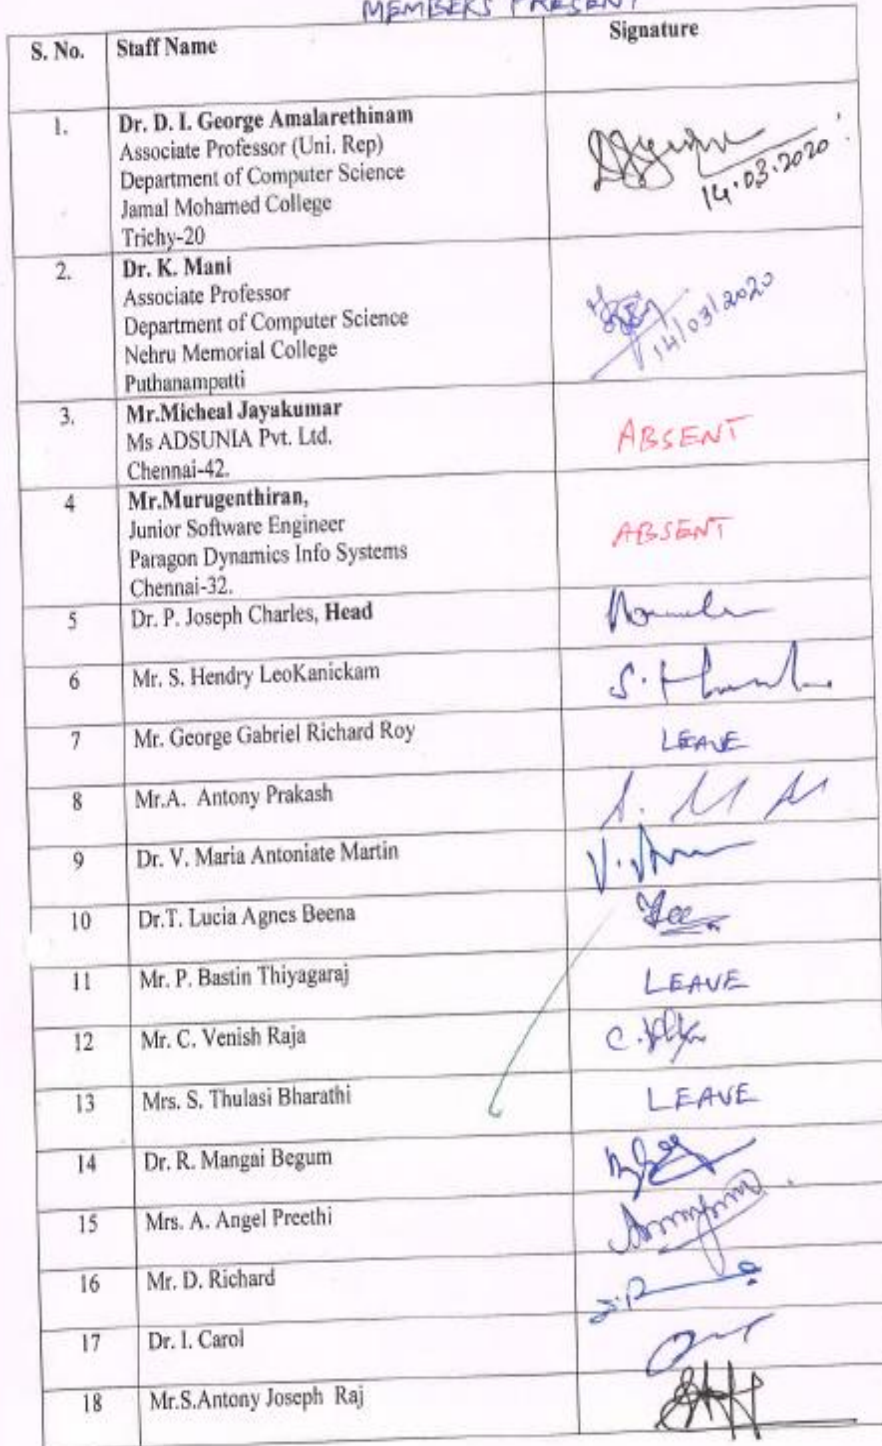 MEMBERS PRESENT
S. No. Staff Name Signature
1. Dr. D. I. George Amalarethinam
Associate Professor (Uni. Rep)
Department of Computer Science
Jamal Mohamed College
Trichy-20
14.03.2020
2. Dr. K. Mani
Associate Professor
Department of Computer Science
Nehru Memorial College
Puthanampatti
14/03/2020
3. Mr.Micheal Jayakumar
Ms ADSUNIA Pvt. Ltd.
Chennai-42.
ABSENT
4 Mr.Murugenthiran,
Junior Software Engineer
Paragon Dynamics Info Systems
Chennai-32.
ABSENT
5 Dr. P. Joseph Charles, Head
6 Mr. S. Hendry LeoKanickam
7 Mr. George Gabriel Richard Roy LEAVE
8 Mr.A. Antony Prakash
9 Dr. V. Maria Antoniate Martin
10 Dr.T. Lucia Agnes Beena
11 Mr. P. Bastin Thiyagaraj LEAVE
12 Mr. C. Venish Raja
13 Mrs. S. Thulasi Bharathi LEAVE
14 Dr. R. Mangai Begum
15 Mrs. A. Angel Preethi
16 Mr. D. Richard
17 Dr. I. Carol
18 Mr.S.Antony Joseph Raj